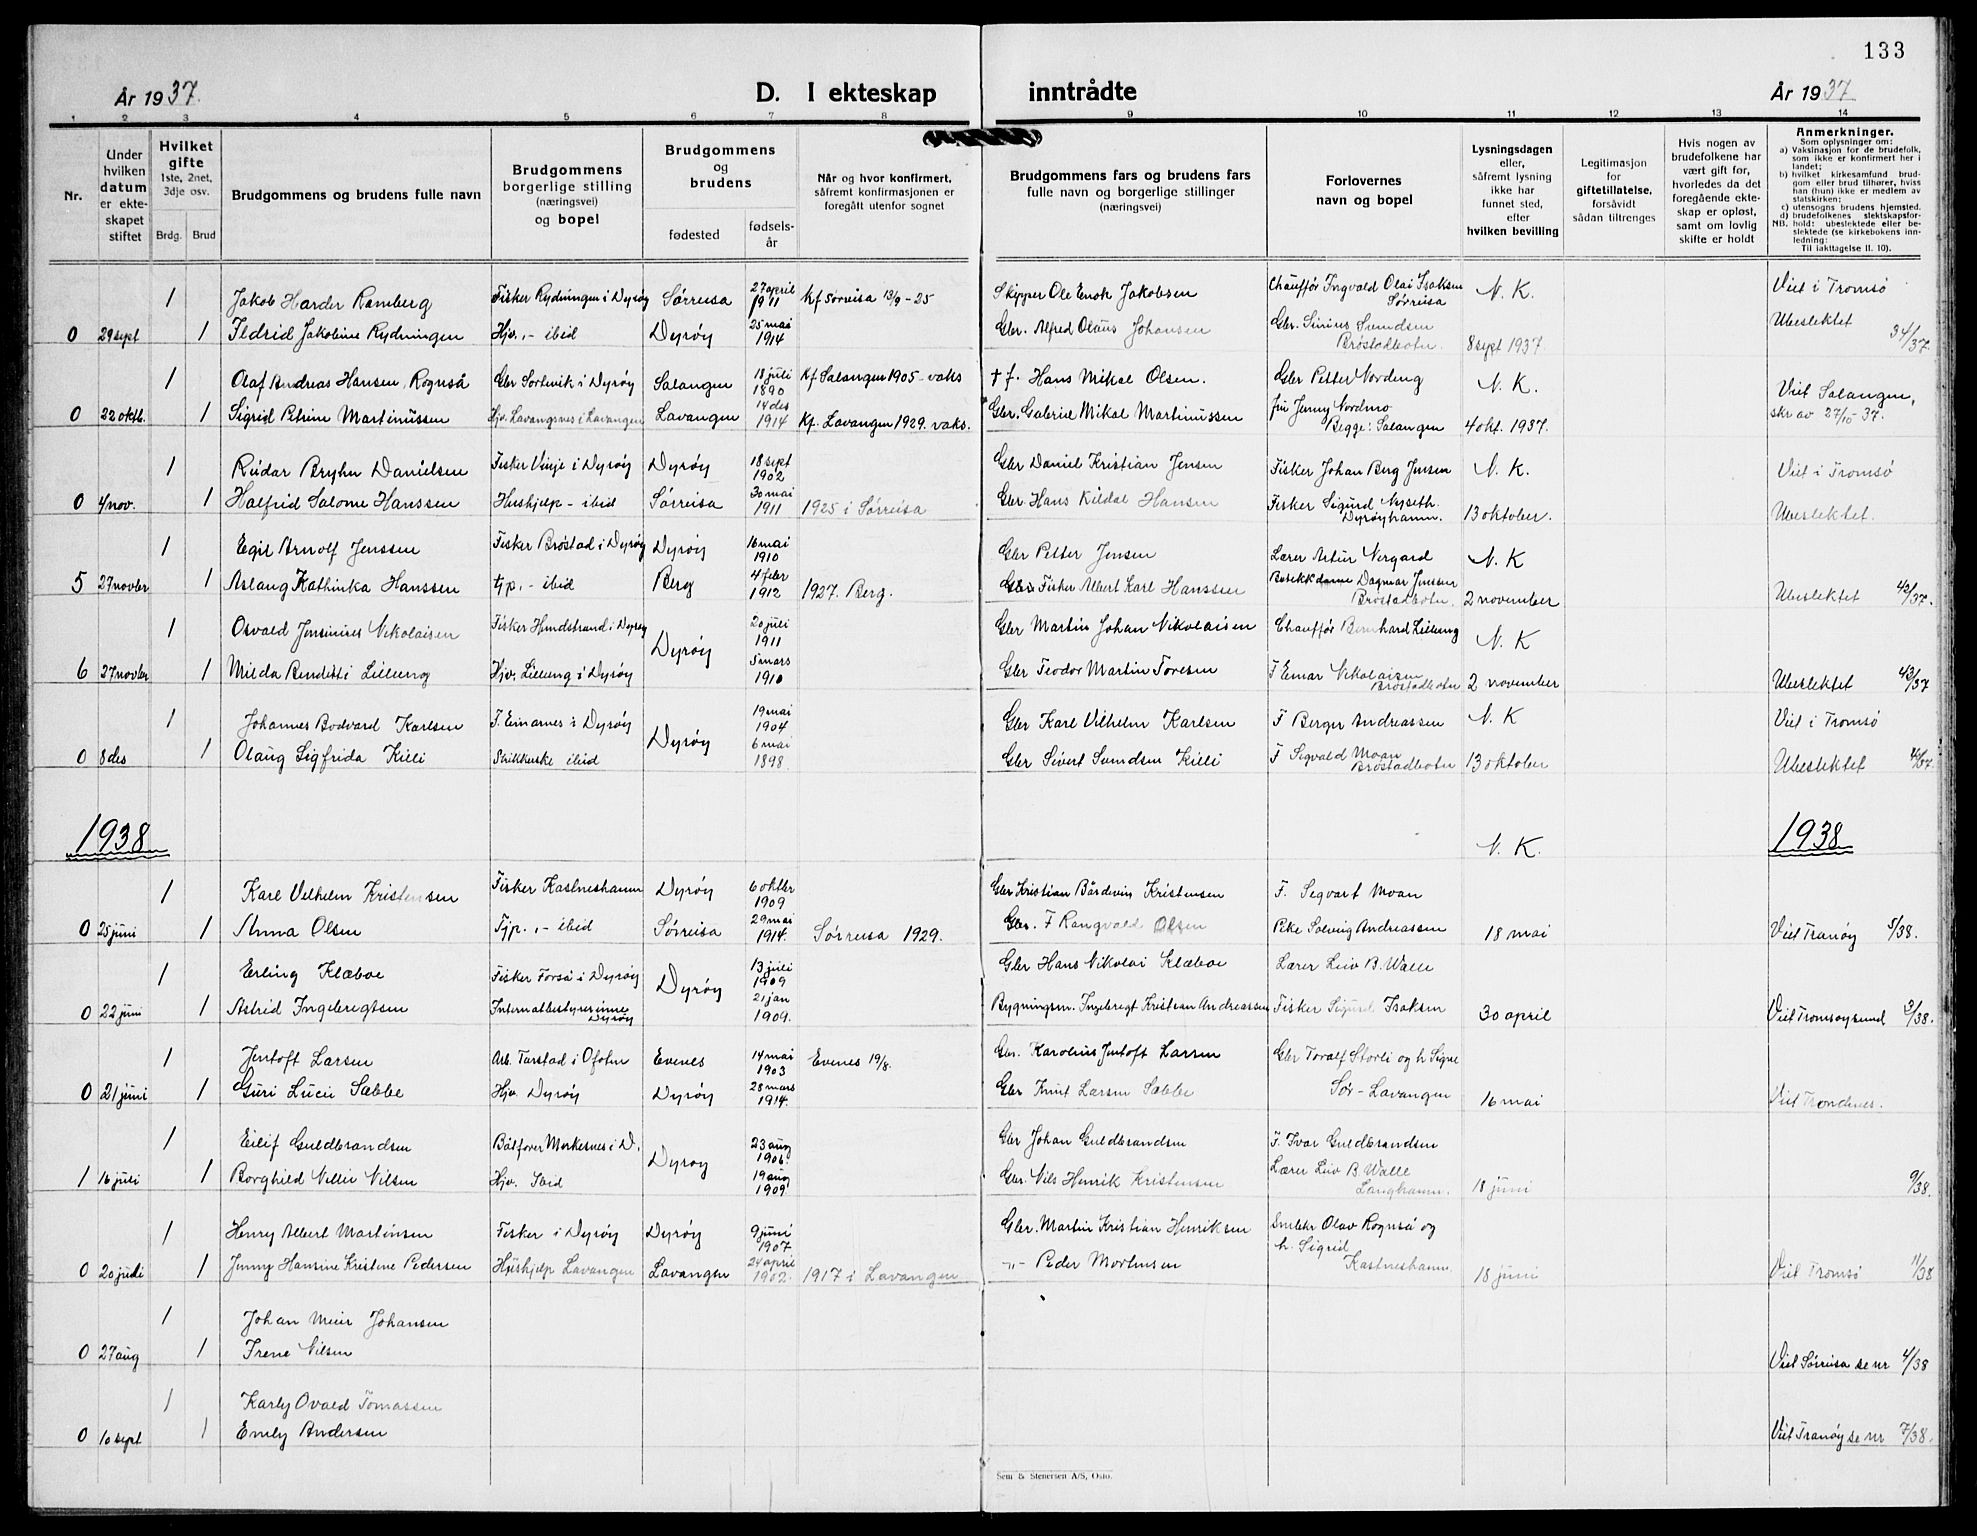 133
År 1937.
D. I ekteskap inntrådte
År 1937
1 2 3 4 5 6 7 8 9 10 11 12 13 14
Nr.
Under hvilken datum er ekteskapet stiftet
Hvilket gifte
1ste, 2net, 3dje osv.
Brdg. Brud
Brudgommens og brudens fulle navn
Brudgommens borgerlige stilling (næringsvei) og bopel
Brudgommens og brudens
fødested
fødselsår
Når og hvor konfirmert, såfremt konfirmasjonen er foregått utenfor sognet
Brudgommens fars og brudens fars fulle navn og borgerlige stillinger (næringsvei)
Forlovernes navn og bopel
Lysningsdagen eller, såfremt lysning ikke har funnet sted, efter hvilken bevilling
Legitimasjon for giftetillatelse, forsåvidt sådan tiltrenges
Hvis nogen av brudefolkene har vært gift før, hvorledes da det foregående ekteskap er opløst, samt om lovlig skifte er holdt
Anmerkninger.
Som oplysninger om:
a) Vaksinasjon for de brudefolk, som ikke er konfirmert her i landet;
b) hvilket kirkesamfund brudgom eller brud tilhører, hviss han (hun) ikke er medlem av statskirken;
c) utensogns brudens hjemsted.
d) brudefolkenes slektskapsforhold: ubeslektede eller beslektede (se kirkebokens innledning:
NB. Til iakttagelse II. 10).
1 Jakob Harder Ramberg Fisker Rydningen i Dyrøy Sørreisa 27 april 1911 Kf Sørreisa 13/9-25 Skipper Ole Enok Jakobsen Chauffør Ingvald Olai Isaksen Sørreisa N. K. Viet i Tromsø
0 29 sept 1 Ildrid Jakobine Rydningen Hjv. - ibid Dyrøy 25 mai 1914 Gbr. Alfred Olaus Johansen Gbr. Sirius Svendsen Brøstadbotn. 8 sept 1937. Ubeslektet 34/37.
1 Olaf Andreas Hansen, Rognså Gbr Sortevik i Dyrøy Salangen 18 juli 1890 Kf Salangen 1905 - vaks † f. Hans Mikal Olsen. Gbr Petter Nordeng N. K. Viet Salangen,
0 22 oktb. 1 Sigrid Petrine Martinussen Hjv. Lavangsnes i Lavangen Lavangen 14 des 1914 Kf. Lavangen 1929. vaks. Gbr. Gabriel Mikal Martinussen fru Jenny Nordmo Begge: Salangen 4 okt. 1937. skr av 27/10-37.
1 Reidar Bryhn Danielsen Fisker Vinje i Dyrøy Dyrøy 18 sept 1902 Gbr Daniel Kristian Jensen Fisker Johan Berg Jensen N. K. Viet i Tromsø
0 4 nov. 1 Halfrid Salome Hanssen Hushjelp - ibid Sørreisa 30 mai 1911 1925 i Sørreisa Gbr Hans Kildal Hansen Fisker Sigurd Nyseth. Dyrøyhamn. 13 oktober. Ubeslektet.
1 Egil Arnolf Jenssen Fisker Brøstad i Dyrøy Dyrøy 16 mai 1910 Gbr Petter Jensen Lærer Artur Vergard N. K
5 27 novbr 1 Aslaug Kathinka Hanssen tjp. - ibid Berg 4 febr 1912 1927. Berg. Fisker Albert Karl Hanssen Butikkdame Dagmar Jenssen Brøstadbotn. 2 november Ubeslektet 42/37.
1 Osvald Jensinius Nikolaisen Fisker Hundstrand i Dyrøy Dyrøy 20 juli 1911 Gbr Martin Johan Nikolaisen Chauffør Bernhard Lilleng N. K
6 27 novbr 1 Milda Bendetti Lilleng Hjv. Lilleng i Dyrøy 5 mars 1910 Gbr Teodor Martin Toresen F Einar Nikolaisen Brøstadbotn 2 november Ubeslektet 43/37
1 Johannes Bodvard Karlsen F. Einarnes i Dyrøy Dyrøy 19 mai 1904 Gbr Karl Vilhelm Karlsen F Berger Andreassen N. K Viet i Tromsø
0 8 des 1 Olaug Sigfrida Killi ibid 6 mai 1898. Gbr Sivert Svendsen Killi F Segvald Moan Brøstadbotn 13 oktober Ubeslektet
1938 N. K. 1938
1 Karl Vilhelm Kristensen Fisker Kastneshamn Dyrøy 6 oktbr 1909 Gbr Kristian Bårdevin Kristensen F. Segvart Moan
0 25 juni 1 Anna Olsen Tjp. - ibid Sørreisa 29 mai 1914. Sørreisa 1929. Gbr. F Rangvald Olsen Pike Solveig Andreassen 18 mai Viet Tranøy 5/38.
1 Erling Klæboe Fisker Forså i Dyrøy Dyrøy 13 juli 1909 Gbr Hans Nikolai Klæboe Lærer Leiv B. Walle
0 22 juni 1 Astrid Ingebrigtsen Internatbestyrerinne Dyrøy 21 jan 1909. Bygningsm. Ingebrigt Kristian Andreassen Fisker Sigurd Isaksen 30 april Viet Tromsøysund 3/38.
1 Jentoft Larsen Arb. Tarstad i Ofoten Evenes 14 mai 1903 Evenes 19/8. Gbr. Karolius Jentoft Larsen Gbr Toralf Storli og h. Signe
0 21 juni 1 Guri Lucie Sæbbe Hjv. Dyrøy Dyrøy 28 mars 1914. Gbr Knut Larsen Sæbbe Sør-Lavangen 16 mai Viet Trondenes.
1 Eilif Guldbrandsen Båtfører Mørkesnes i D. Dyrøy 23 aug 1906. Gbr Johan Guldbrandsen F. Ivar Guldbrandsen
1 16 juli 1 Borghild Nellie Nilsen Hjv. Ibid 19 aug 1909. Gbr. Nils Henrik Kristensen Lærer Leiv B. Walle Langhamn. 18 juni 9/38.
1 Henry Albert Martinsen Fisker i Dyrøy Dyrøy 9 juni 1907 Gbr. Martin Kristian Henriksen Småbr Olav Rognså og
0 20 juli 1 Jenny Hansine Kristine Pedersen Hushjelp Lavangen Lavangen 24 april 1902. 1917 i Lavangen -"- Peder Mortensen h. Sigrid Kastneshamn. 18 juni Viet Tromsø 11/38
1 Johan Meier Johansen
0 27 aug 1 Irene Nilsen Viet Sørreisa se nr 4/38
1 Karly Ovald Tomassen
0 10 sept 1 Emily Andersen Viet Tranøy se nr 7/38.
Sem & Stenersen A/S, Oslo.